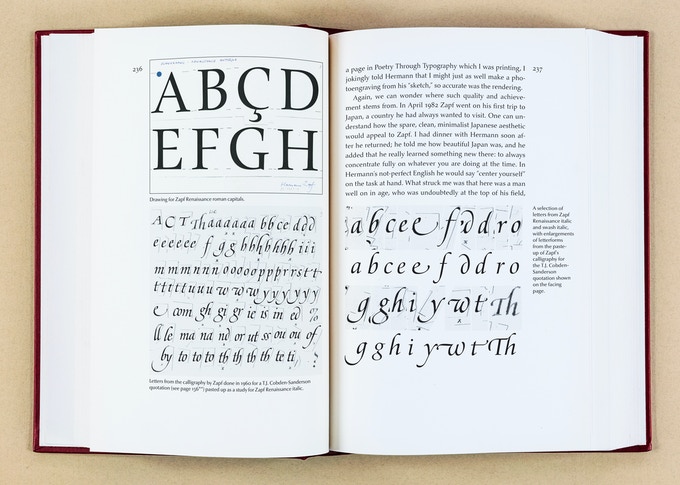 236
ABÇD
EFGH
Drawing for Zapf Renaissance roman capitals.
A C T Th a a a a a a b b c e d d d
e e e e e e f g g h h h h h h i i i
m m m n n n o o o o o p p p r r s t t
t t t t t u u u w w w y y y y y y
e com gh gi gr ie is in ed %
ll le ma na nd or ut ss ou ou of
by to to to th th th th te ti
Letters from the calligraphy by Zapf done in 1960 for a T.J. Cobden-Sanderson
quotation (see page 136) pasted up as a study for Zapf Renaissance italic.
237
a page in Poetry Through Typography which I was printing, I
jokingly told Hermann that I might just as well make a pho-
toengraving from his "sketch," so accurate was the rendering.
Again, we can wonder where such quality and achieve-
ment stems from. In April 1982 Zapf went on his first trip to
Japan, a country he had always wanted to visit. One can un-
derstand how the spare, clean, minimalist Japanese aesthetic
would appeal to Zapf. I had dinner with Hermann soon af-
ter he returned; he told me how beautiful Japan was, and he
added that he really learned something new there: to always
concentrate fully on whatever you are doing at the time. In
Hermann's not-perfect English he would say "center yourself"
on the task at hand. What struck me was that here was a man
well on in age, who was undoubtedly at the top of his field,
a b c e e f d d r o
a b c e e f d d r o
g g h i y w t Th
g g h i y w t Th
A selection of
letters from Zapf
Renaissance italic
and swash italic,
with enlargements
of letterforms
from the paste-
up of Zapf's
calligraphy for
the T.J. Cobden-
Sanderson
quotation shown
on the facing
page.